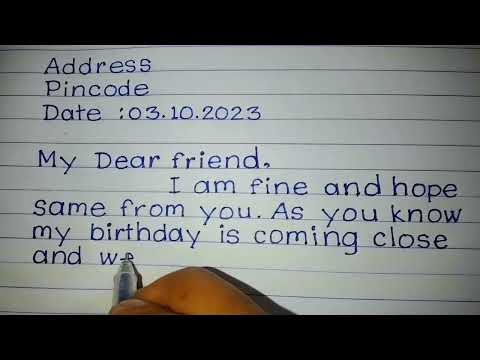 Address
Pincode
Date :03.10.2023
My Dear friend,
I am fine and hope
same from you. As you know
my birthday is coming close
and we